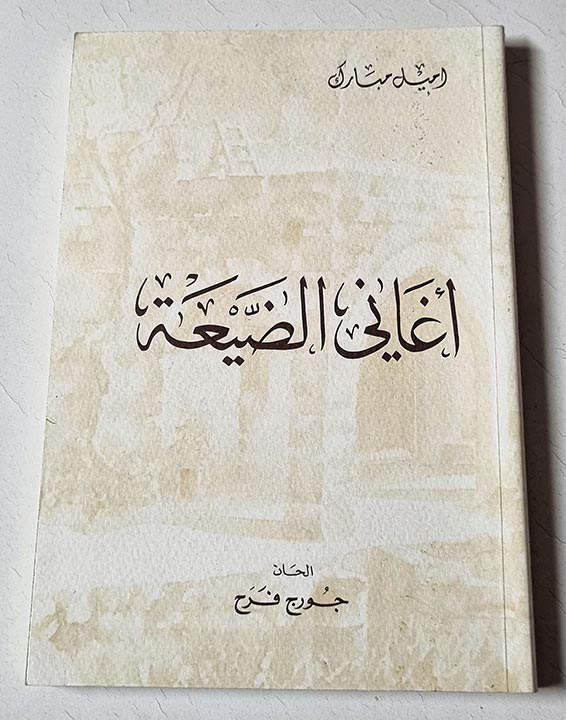 اميل مبارك
أغاني الضيعة
الحان
جورج فرح